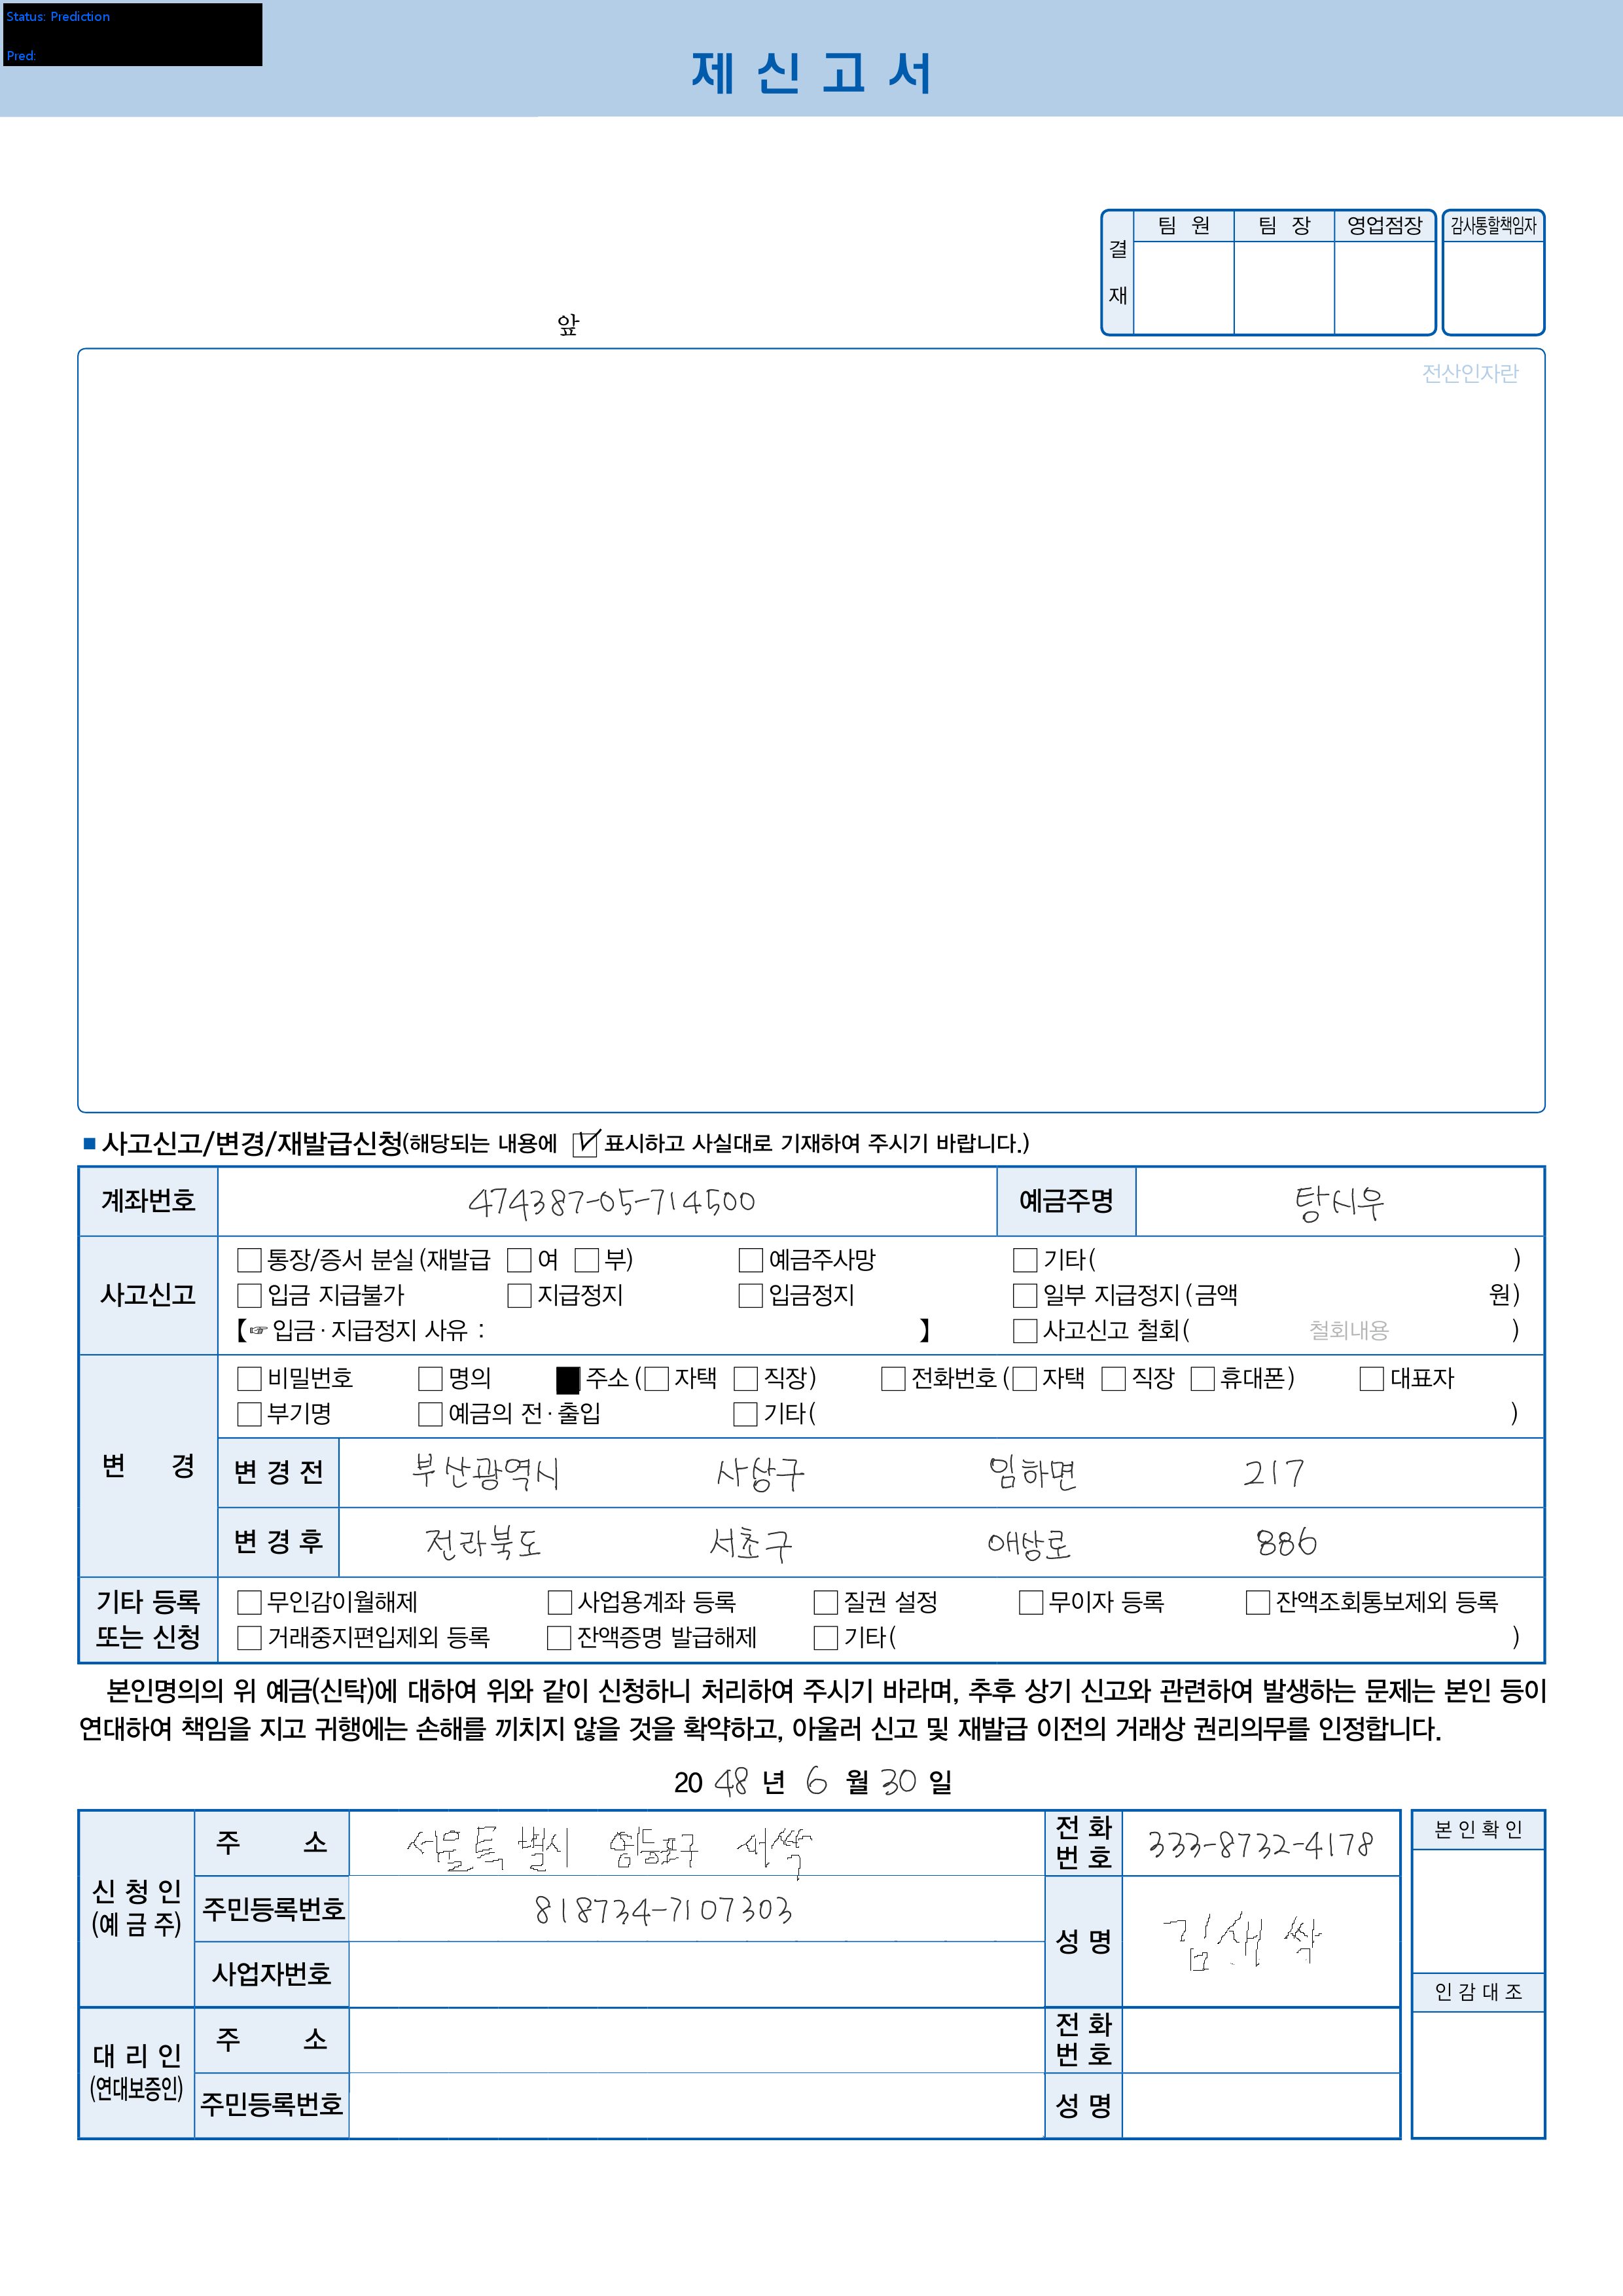 Status: Prediction
Pred:
제 신 고 서
결 재 팀 원 팀 장 영업점장 감사통할책임자
앞
전산인자란
■ 사고신고/변경/재발급신청(해당되는 내용에 ☑ 표시하고 사실대로 기재하여 주시기 바랍니다.)
계좌번호 474387-05-714500 예금주명 탕시우
사고신고
□ 통장/증서 분실 (재발급 □ 여 □ 부) □ 예금주사망 □ 기타( )
□ 입금 지급불가 □ 지급정지 □ 입금정지 □ 일부 지급정지 (금액 원)
【☞ 입금·지급정지 사유 : 】 □ 사고신고 철회( 철회내용 )
변 경
□ 비밀번호 □ 명의 ■ 주소 (□ 자택 □ 직장) □ 전화번호 (□ 자택 □ 직장 □ 휴대폰) □ 대표자
□ 부기명 □ 예금의 전·출입 □ 기타( )
변 경 전 부산광역시 사상구 임하면 217
변 경 후 전라북도 서초구 애상로 886
기타 등록 또는 신청
□ 무인감이월해제 □ 사업용계좌 등록 □ 질권 설정 □ 무이자 등록 □ 잔액조회통보제외 등록
□ 거래중지편입제외 등록 □ 잔액증명 발급해제 □ 기타( )
본인명의의 위 예금(신탁)에 대하여 위와 같이 신청하니 처리하여 주시기 바라며, 추후 상기 신고와 관련하여 발생하는 문제는 본인 등이
연대하여 책임을 지고 귀행에는 손해를 끼치지 않을 것을 확약하고, 아울러 신고 및 재발급 이전의 거래상 권리의무를 인정합니다.
20 48 년 6 월 30 일
신 청 인 (예 금 주)
주 소 서울특별시 영등포구 전화번호 333-8732-4178
주민등록번호 818734-7107303
성 명 김새싹
사업자번호
대 리 인 (연대보증인)
주 소 전화번호
주민등록번호 성 명
본 인 확 인
인 감 대 조